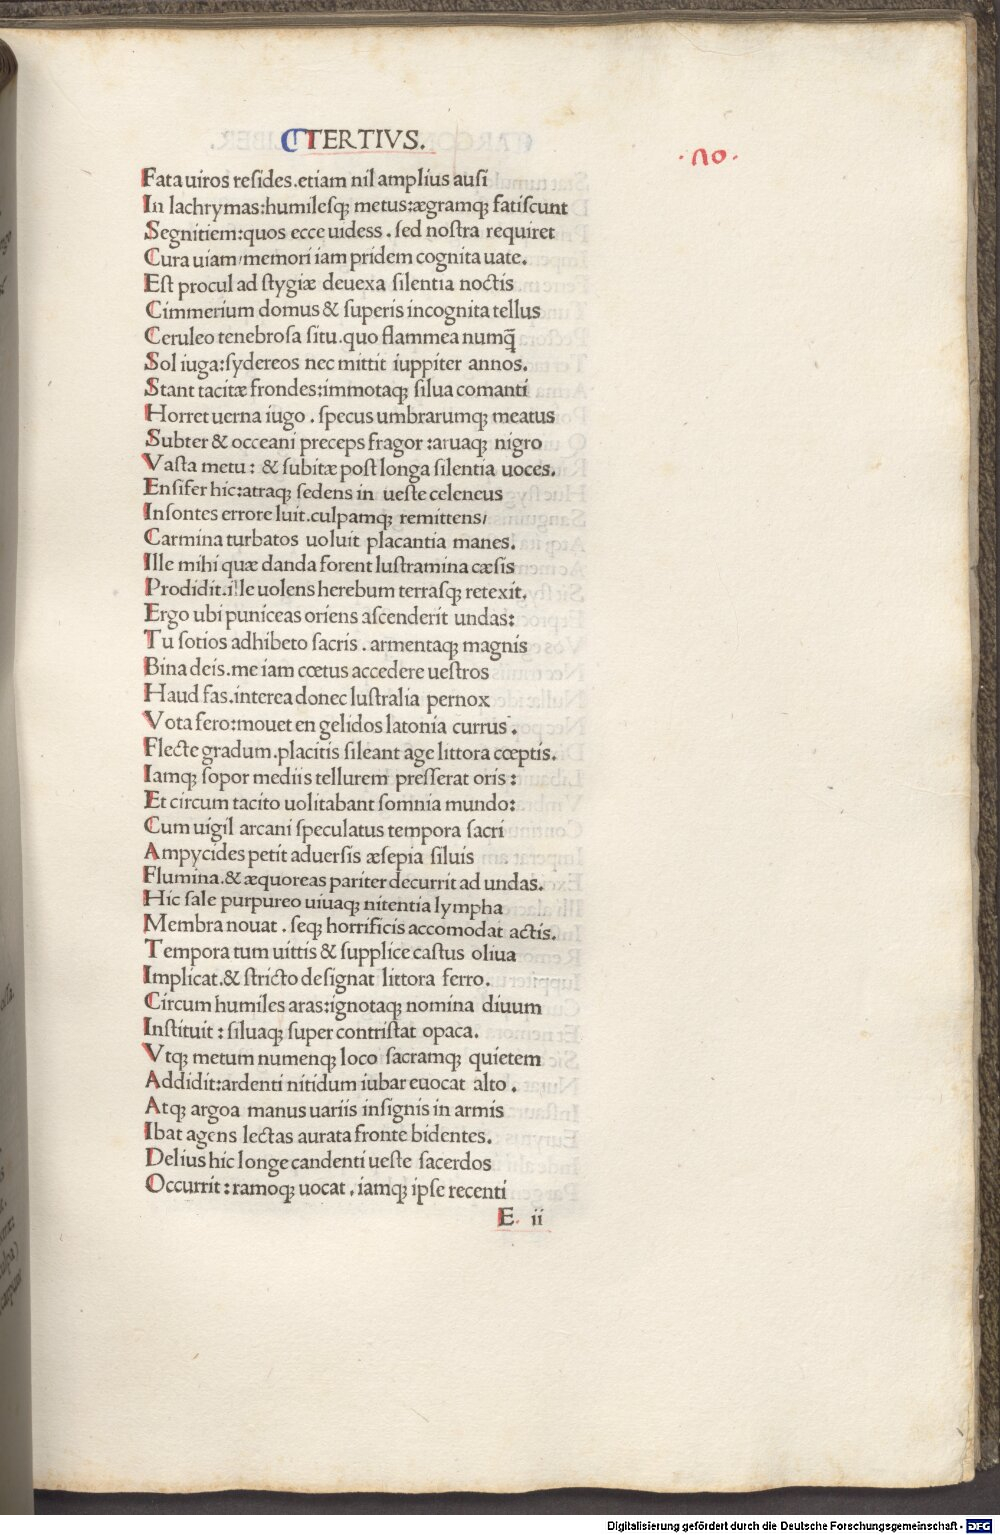 TERTIVS.
.70.
Fata uiros resides.etiam nil amplius ausi
In lachrymas:humilesqꝫ metus:ægramqꝫ fatiscunt
Segnitiem:quos ecce uidess . sed nostra requiret
Cura uiam/memori iam pridem cognita uate.
Est procul ad stygiæ deuexa silentia noctis
Cimmerium domus & superis incognita tellus
Ceruleo tenebrosa situ.quo flammea numq̃
Sol iuga:sydereos nec mittit iuppiter annos.
Stant tacitæ frondes:immotaqꝫ silua comanti
Horret uerna iugo . specus umbrarumqꝫ meatus
Subter & occeani preceps fragor :aruaqꝫ nigro
Vasta metu : & subitæ post longa silentia uoces.
Ensifer hic:atraqꝫ sedens in ueste celeneus
Insontes errore luit.culpamqꝫ remittens/
Carmina turbatos uoluit placantia manes.
Ille mihi quæ danda forent lustramina cæsis
Prodidit.ille uolens herebum terrasqꝫ retexit.
Ergo ubi puniceas oriens ascenderit undas:
Tu sotios adhibeto sacris . armentaqꝫ magnis
Bina deis.me iam cœtus accedere uestros
Haud fas.interea donec lustralia pernox
Vota fero:mouet en gelidos latonia currus .
Flecte gradum.placitis sileant age littora cœptis.
Iamqꝫ sopor mediis tellurem presserat oris :
Et circum tacito uolitabant somnia mundo:
Cum uigil arcani speculatus tempora sacri
Ampycides petit aduersis æsepia siluis
Flumina.& æquoreas pariter decurrit ad undas.
Hic sale purpureo uiuaqꝫ nitentia lympha
Membra nouat . seqꝫ horrificis accomodat actis.
Tempora tum uittis & supplice castus oliua
Implicat.& stricto designat littora ferro.
Circum humiles aras:ignotaqꝫ nomina diuum
Instituit : siluaqꝫ super contristat opaca.
Vtqꝫ metum numenqꝫ loco sacramqꝫ quietem
Addidit:ardenti nitidum iubar euocat alto .
Atqꝫ argoa manus uariis insignis in armis
Ibat agens lectas aurata fronte bidentes.
Delius hic longe candenti ueste sacerdos
Occurrit : ramoqꝫ uocat . iamqꝫ ipse recenti
E. ii
Digitalisierung gefördert durch die Deutsche Forschungsgemeinschaft - DFG